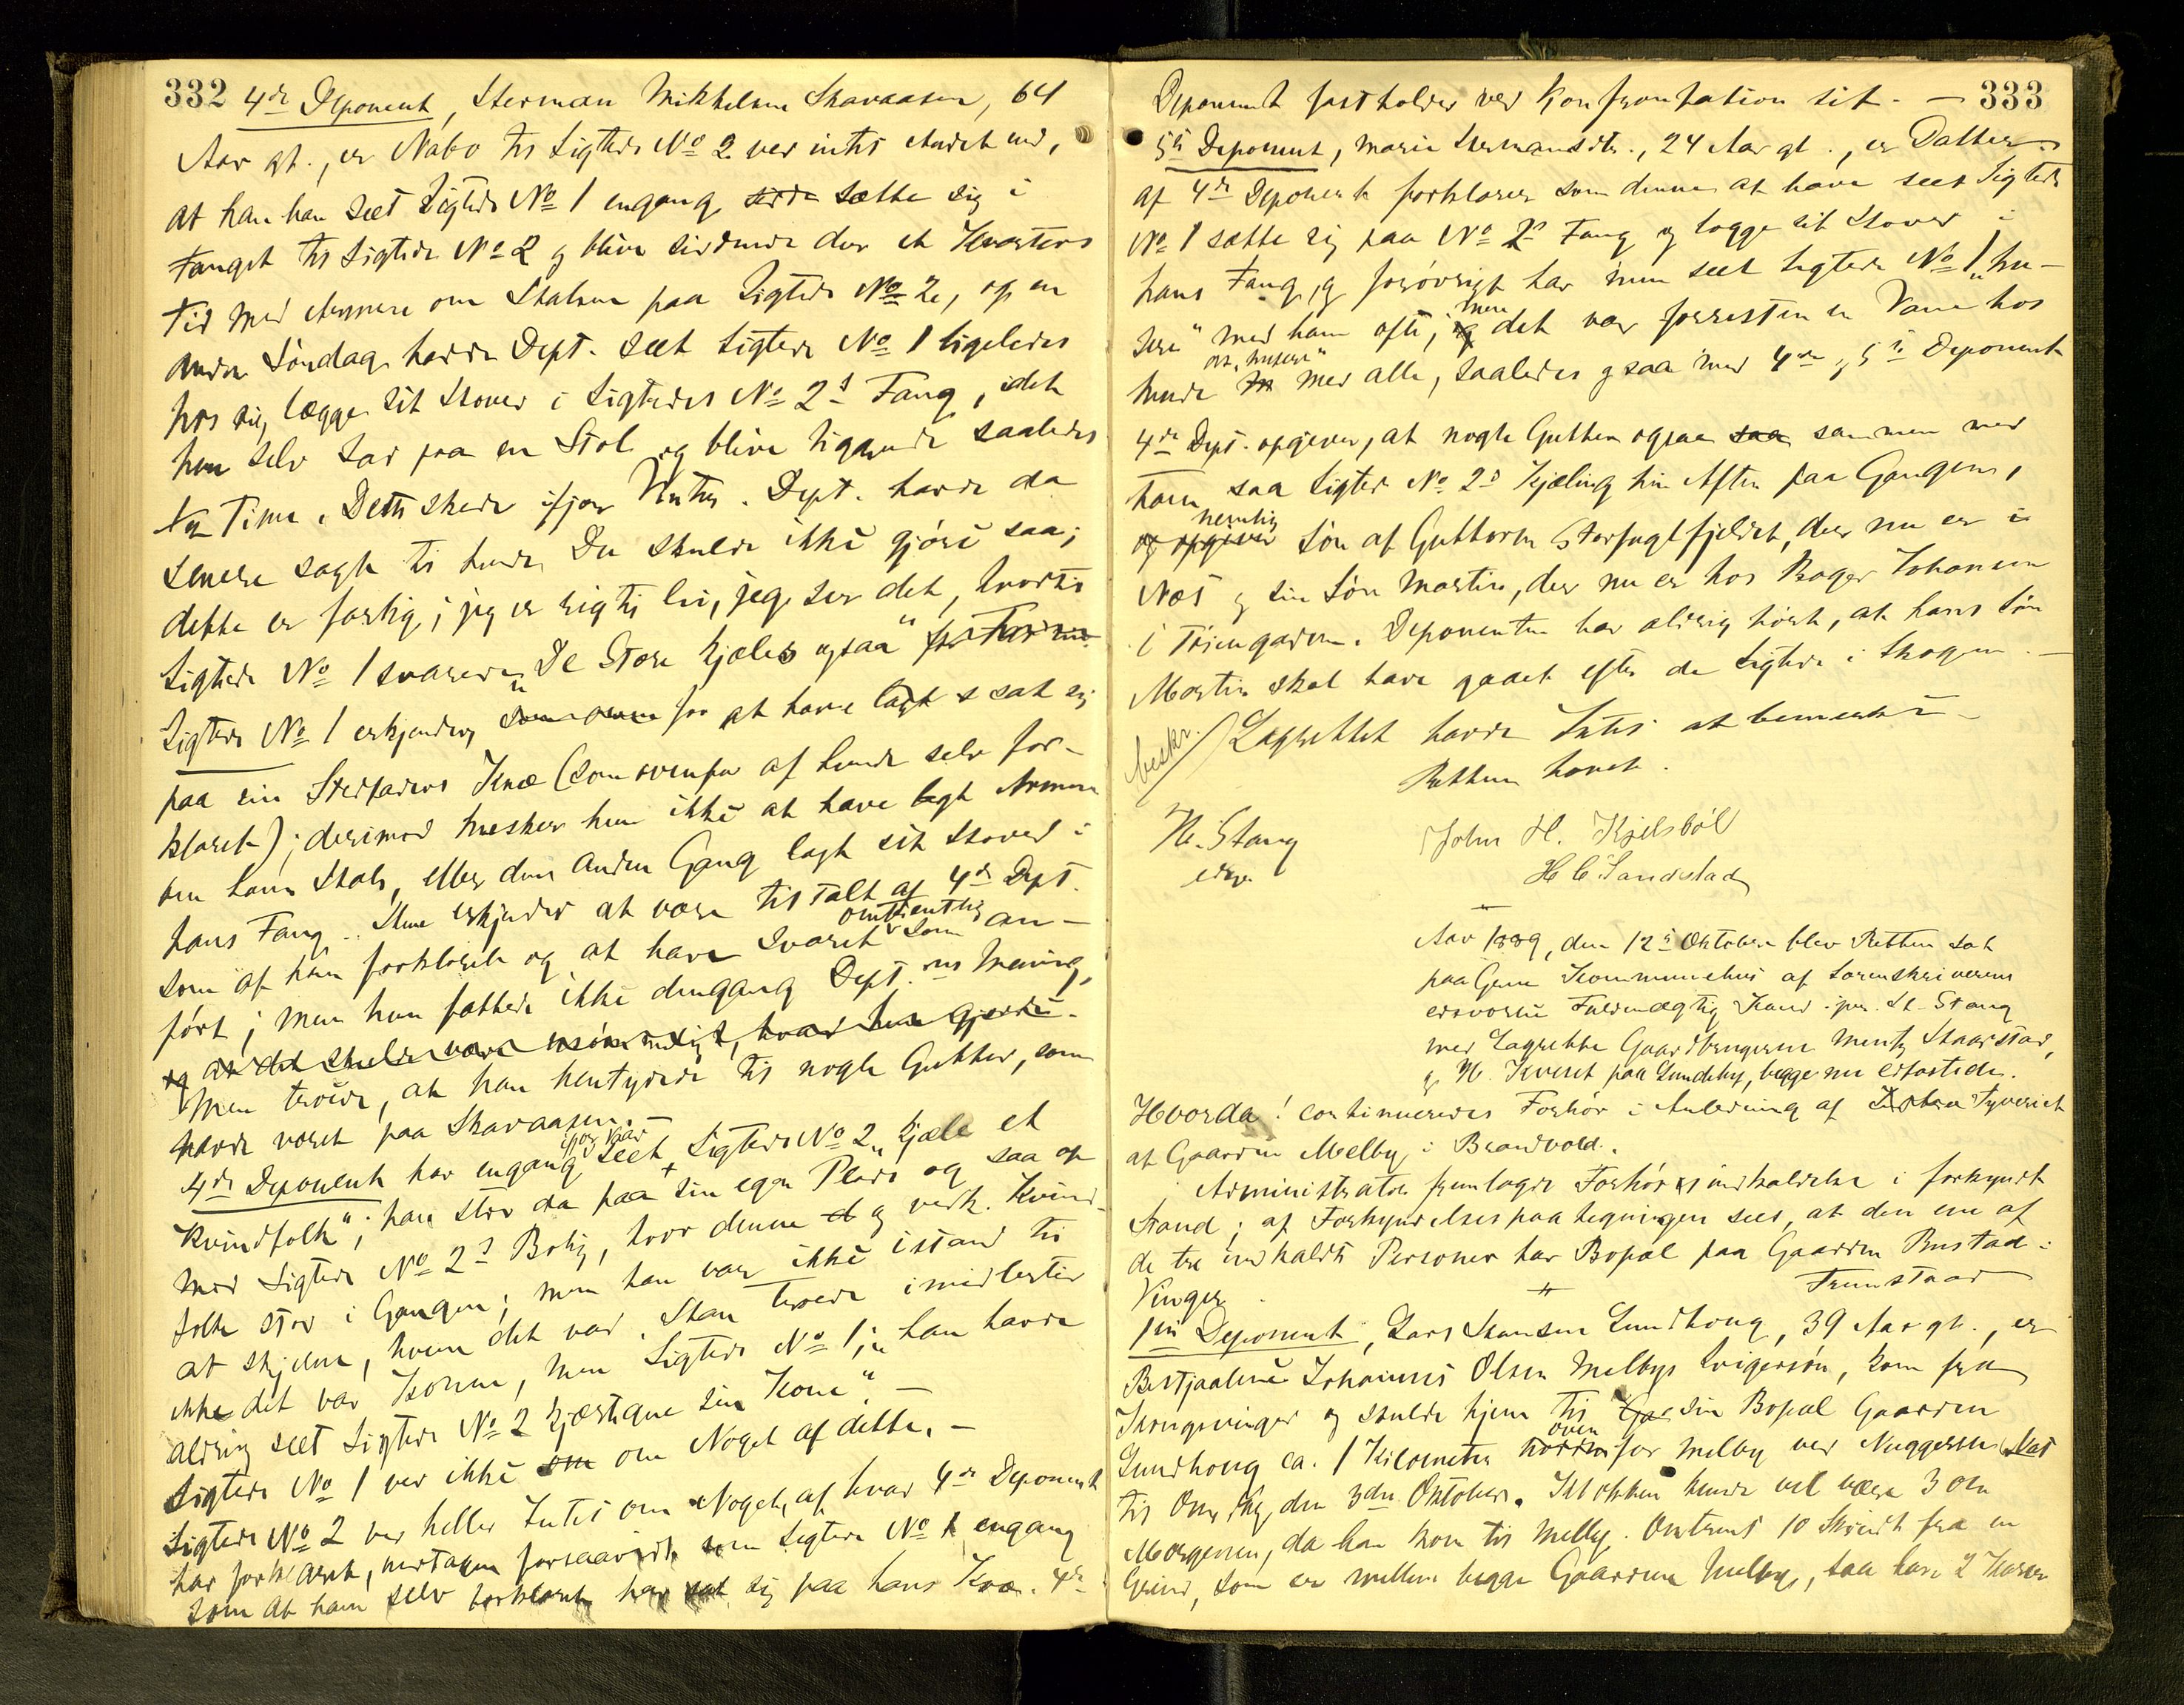 332 4de Deponent, Herman Mikkelsen Skaraasen, 64
Aar gl., er Nabo til Sigtede No 2 ved intet Andet end,
at han har seet Sigtede No 1 engang sidde sætte sig i
Fanget til Sigtede No 2 og blive siddende der et Kvarters
Tid med Armene om Halsen paa Sigtede No 2, og en
anden Søndag havde Dept. seet Sigtede No 1 ligeledes
hos sig lægge sit Hoved i Sigtedes No 2s Fang, idet
hun selv sad paa en Stol og blive liggende saaledes
en Time. Dette skede ifjor Vinter. Dept. havde da
senere sagt til hende Du skulde ikke gjøre saa;
dette er farlig; jeg er rigtig lei, jeg ser det, hvortil
Sigtede No 1 svarede "De Store kjæles ogsaa"
Sigtede No 1 erkjender, for at have lagt s sat sig
paa sin Stedfaders Knæ (som ovenfor af hende selv for-
klaret); derimod husker hun ikke at have lagt Armene
om hans Hals, eller den anden Gang lagt sit Hoved i
hans Fang. Hun erkjender at være tiltalt af 4de Dept.
som af ham forklaret og at have svaret omtrentlig som an-
ført; men hun fattede ikke dengang Dept.ns Mening,
og at det skulde være usømmeligt, hvad hun gjorde.
Men troede, at han hentydede til nogle Gutter, som
havde været paa Skaraasen. —
4de Deponent har engang ifjor Vaar seet Sigtede No 2 "kjæle et
Kvindfolk"; han stod da paa sin egen Plads og saa op
mod Sigtede No 2s Bolig, hvor denne og vedk. Kvind-
folk stod i Gangen; men han var ikke istand til
at skjelne, hvem det var. Han troede imidlertid
ikke det var Konen, men Sigtede No 1; "han havde
aldrig seet Sigtede No 2 kjærtegne sin Kone". —
Sigtede No 1 ved ikke om om Noget af dette. —
Sigtede No 2 ved heller Intet om Noget, af hvad 4de Deponent
har forklaret, undtagen forsaavidt som Sigtede No 1 engang
som af ham selv forklaret har sat sig paa hans Knæ. 4de
Deponent fastholder ved Konfrontation sit. — 333
5te Deponent, Marie Hermansdtr., 24 Aar gl., er Datter
af 4de Deponent forklarer som denne at have seet Sigtede
No 1 sætte sig paa No 2s Fang og lægge sit Hoved i
hans Fang, og forøvrigt har hun seet Sigtede No 1 "hu-
sere" med ham ofte; og men det var forresten en Vane hos
hende at "husere" med alle, saaledes ogsaa med 4de og 5te Deponent
4de Dept. opgiver, at nogle Gutter ogsaa saa sammen med
ham saa Sigtede No 2s Kjæling hin Aften paa Gangen,
og opgiver nemlig Søn af Guttorm Storfuglfjeldet, der nu er i
Næs og sin Søn Martin, der nu er hos Bager Johansen
i Tøiengaden. Deponenten har aldrig hørt, at hans Søn
Martin skal have gaaet efter de Sigtede i Skogen. —
beskr. Lagrettet havde Intet at bemerke —
Retten hævet.
N. Stang
edsv.
John H. Kjelsbøl
H C Sandstad
—
Aar 1889, den 12te Oktober blev Retten sat
paa Grue Kommunehus af Sorenskriverens
edsvorne Fuldmægtig Kand. jur. N. Stang
med Lagrette Gaardbrugerne Mentz Skaarstad,
og N. Kveset paa Lundeby, begge nu edfæstede.
Hvorda! continueredes Forhør i Anledning af Tyveriet
at Gaarden Melby i Brandvold.
Administrator fremlagde Forhørsindkaldelse i forkyndt
Stand; af Forkyndelsespaategningen sees, at den ene af
de tre indkaldte Personer har Bopæl paa Gaarden Bustad i
Vinger. Fremstaad
1ste Deponent, Lars Hansen Lundhoug, 39 Aar gl., er
Bestjaalne Johannes Olsen Melbys Svigersøn, kom fra
Kongsvinger og skulde hjem til Gaa sin Bopæl Gaarden
Lundhoug ca. 1 Kilometer norden oven for Melby ved Nuggerud Nat
til Onsdag den 3die Oktober. Klokken kunde vel være 3 om
Morgenen, da han kom til Melby. Omtrent 10 Skridt fra en
Grind, som er mellem begge Gaardene Melby, saa han 2 Karer